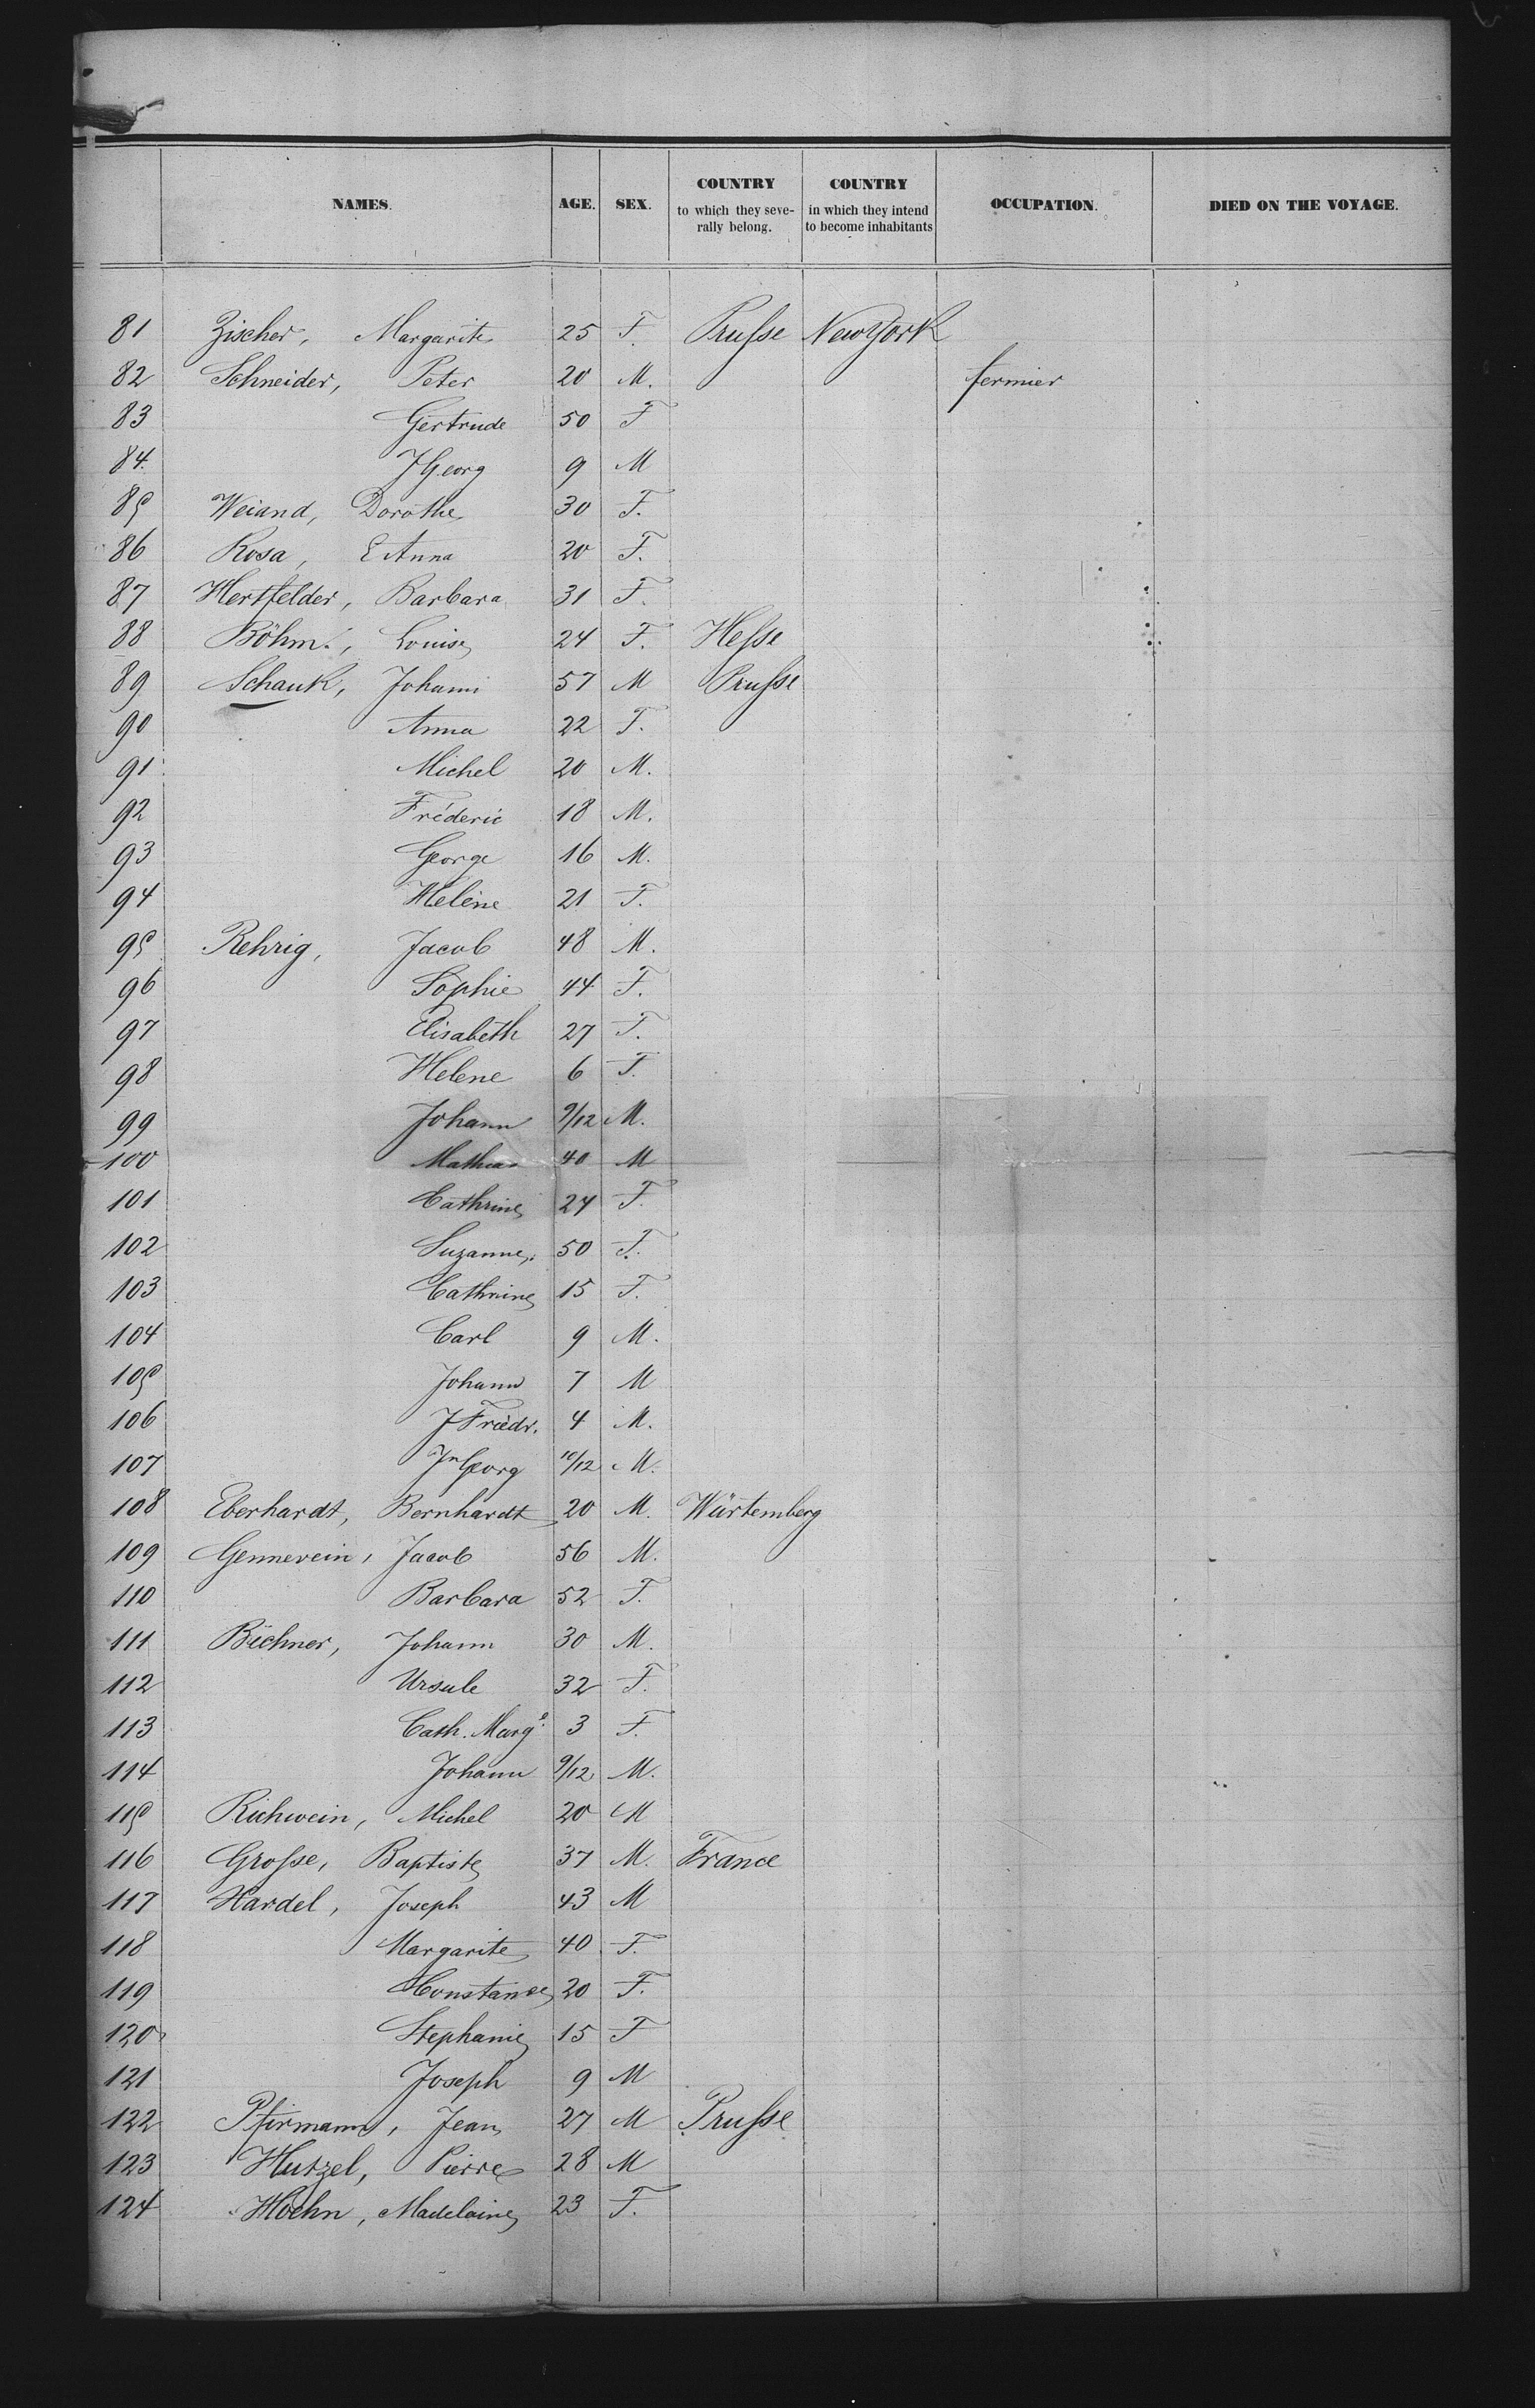 NAMES. AGE. SEX. COUNTRY to which they seve- rally belong. COUNTRY in which they intend to become inhabitants OCCUPATION. DIED ON THE VOYAGE.
81 Zischer, Margarite 25 F. Prusse New York
82 Schneider, Peter 20 M. fermier
83 Gertrude 50 F
84. J Georg 9 M
85 Weiand, Dorothe 30 F.
86 Rosa, E Anna 20 F.
87 Hertfelder, Barbara 31 F.
88 Böhm, Louise 24 F. Hesse
89 Schauk, Johann 57 M Prusse
90 Anna 22 F.
91 Michel 20 M.
92 Fréderic 18 M.
93 George 16 M.
94 Helène 21 F.
95 Rehrig, Jacob 48 M.
96 Sophie 44 F.
97 Elisabeth 27 F.
98 Helene 6 F.
99 Johann 9/12 M.
100 Mathias 40 M
101 Cathrine 24 F.
102 Suzanne 50 F.
103 Cathrine 15 F.
104 Carl 9 M.
105 Johann 7 M
106 J Friedr. 4 M.
107 Jn Georg 10/12 M.
108 Eberhardt, Bernhardt 20 M. Würtemberg
109 Gennerein, Jacob 56 M.
110 Barbara 52 F.
111 Büchner, Johann 30 M.
112 Ursule 32 F.
113 Cath. Marge. 3 F.
114 Johann 9/12 M.
115 Richwein, Michel 20 M
116 Grosse, Baptiste 37 M. France
117 Hardel, Joseph 43 M
118 Margarite 40 F.
119 Constance 20 F.
120 Stephanie 15 F
121 Joseph 9 M
122 Pfirmann, Jean 27 M Prusse
123 Hutzel, Pierre 28 M
124 Hoehn, Madelaine 23 F.